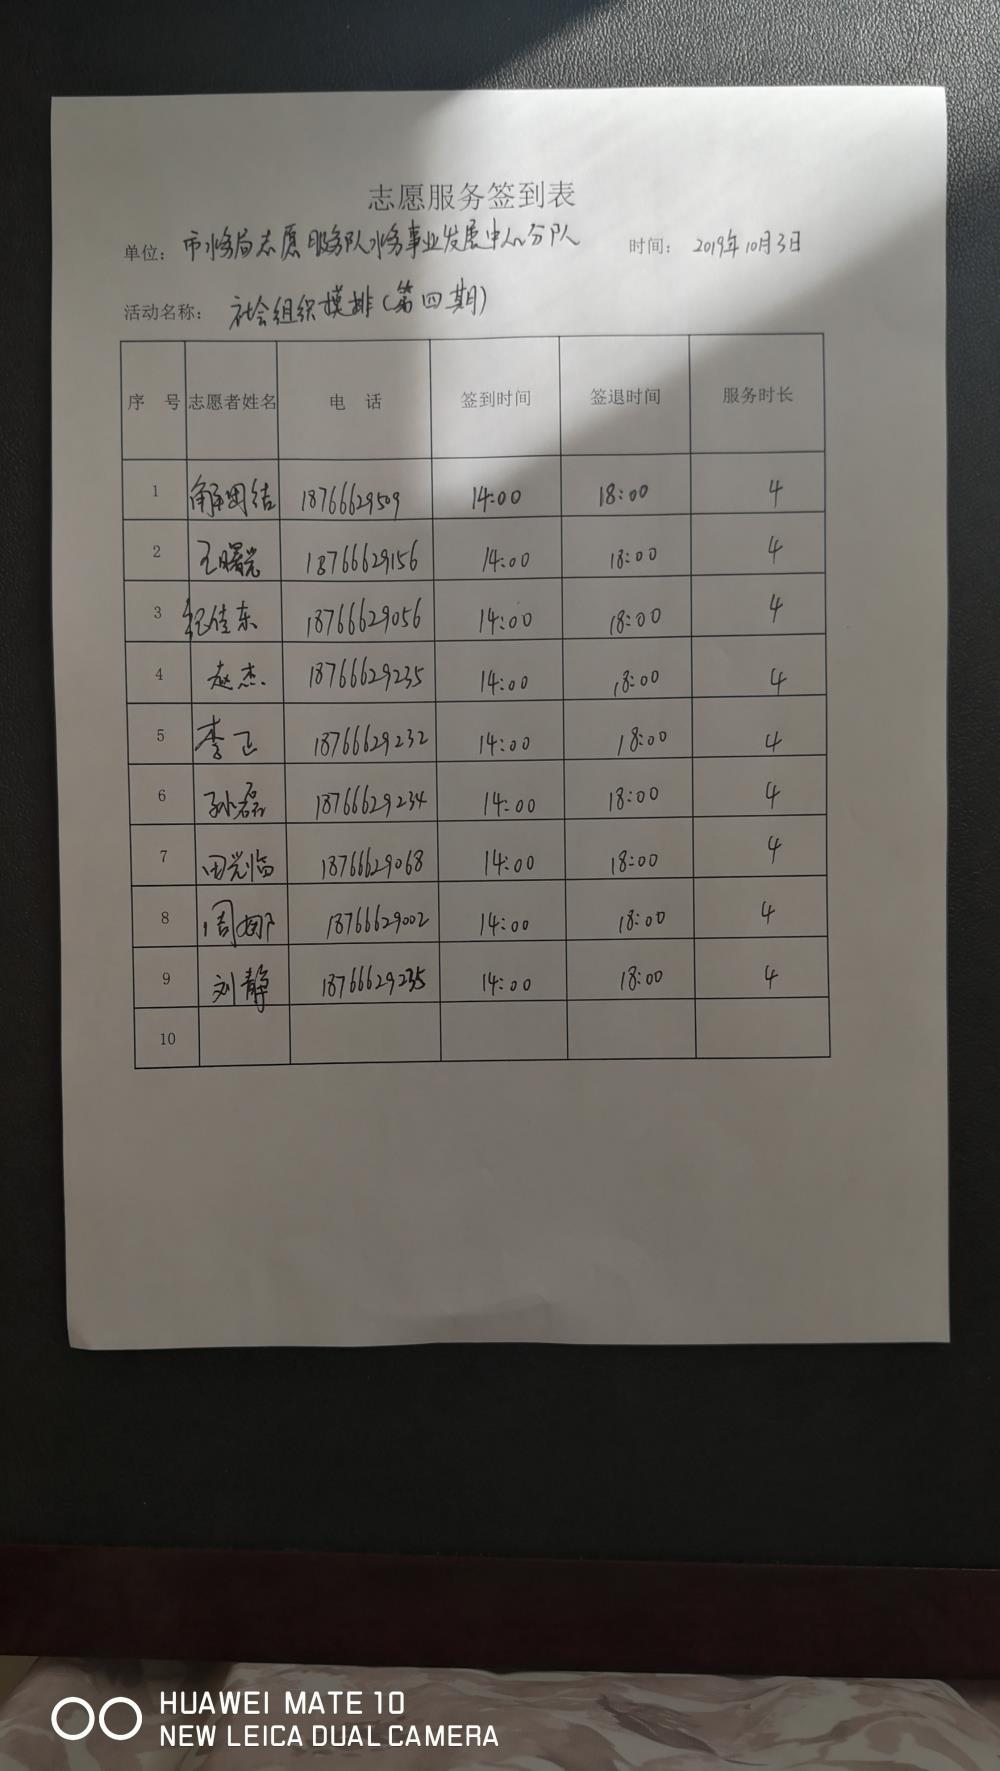 志愿服务签到表
单位： 市水务局志愿服务队水务事业发展中心分队 时间： 2019年10月3日
活动名称： 社会组织摸排（第四期）
序 号 志愿者姓名 电 话 签到时间 签退时间 服务时长
1 解团结 18766629509 14:00 18:00 4
2 王曙光 18766629156 14:00 18:00 4
3 纪佳东 18766629056 14:00 18:00 4
4 赵杰 18766629235 14:00 18:00 4
5 李正 18766629232 14:00 18:00 4
6 孙磊 18766629234 14:00 18:00 4
7 田光临 18766629068 14:00 18:00 4
8 周娜 18766629002 14:00 18:00 4
9 刘静 18766629235 14:00 18:00 4
10
HUAWEI MATE 10
NEW LEICA DUAL CAMERA